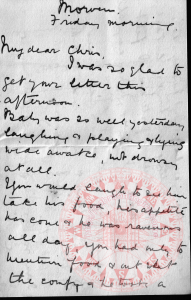 Morven.
Friday morning.
My dear Chris.
I was so glad to
get your letter this
afternoon.
Baby was so well yesterday
laughing & playing & lying
wide awake, not drowsy
at all.
You would laugh to see him
take his food, his appetite
has come & he was ravenous
all day. You had only to
mention food, & out went
the & he a